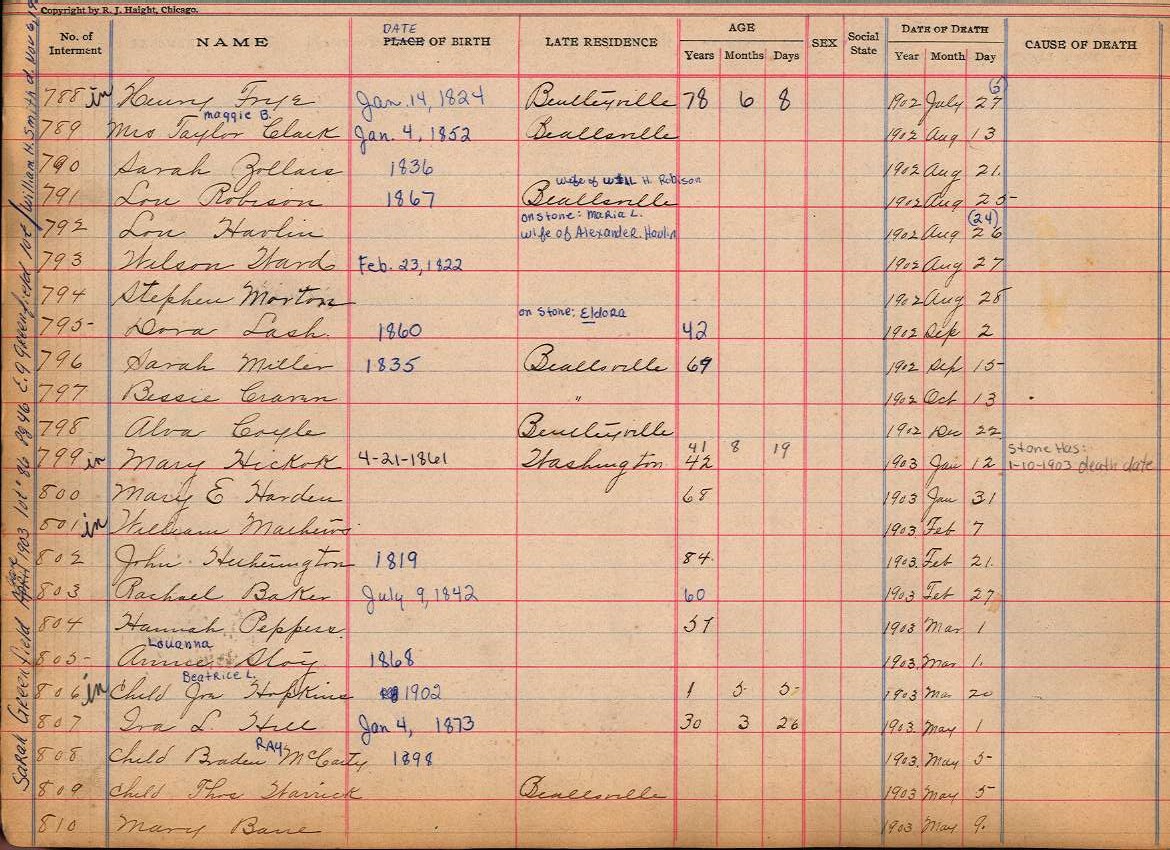 Copyright by R. J. Haight, Chicago.
No. of Interment NAME DATE PLACE OF BIRTH LATE RESIDENCE AGE Years Months Days SEX Social State DATE OF DEATH Year Month Day CAUSE OF DEATH
788 in Henry Frye Jan. 14, 1824 Bentleyville 78 6 8 1902 July 27
Maggie B.
789 Mrs Taylor Clark Jan. 4, 1852 Beallsville 1902 Aug 13
790 Sarah Zollars 1836 1902 Aug 21.
wife of Will H. Robison
791 Lou Robison 1867 Beallsville 1902 Aug 25
on stone: Maria L. (24)
792 Lou Havlin wife of Alexander Havlin 1902 Aug 26
793 Wilson Ward Feb. 23, 1822 1902 Aug 27
794 Stephen Morton 1902 Aug 28
on stone: Eldora
795 Dora Lash. 1860 42 1902 Sep 2
796 Sarah Miller 1835 Beallsville 69 1902 Sep 15
797 Bessie Craven " 1902 Oct 13
798 Alva Coyle Bentleyville 1902 Dec 22
41 8 19 Stone Has:
799 in Mary Hickok 4-21-1861 Washington 42 1903 Jan 12 1-10-1903 death date
800 Mary E Harden 68 1903 Jan 31
801 in William Mathews 1903 Feb 7
802 John Hetherington 1819 84 1903. Feb 21.
803 Rachael Baker July 9, 1842 60 1903 Feb 27
804 Hannah Peppers. 57 1903 Mar 1
Louanna
805 Annie Stoy 1868 1903. Mar 1.
Beatrice L.
806 in Child Jos Hopkins 1902 1 5 5 1903 Mar 20
807 Ira L. Hill Jan 4, 1873 30 3 26 1903. May 1
RAY
808 Child Braden McCarty 1898 1903. May 5
809 Child Thos Warrick Beallsville 1903 May 5
810 Mary Bane 1903 May 9.
Sarah Greenfield 1903 lot 86 Pg 46 E.G Greenfield lot / William H. Smith d. Nov 6, 19